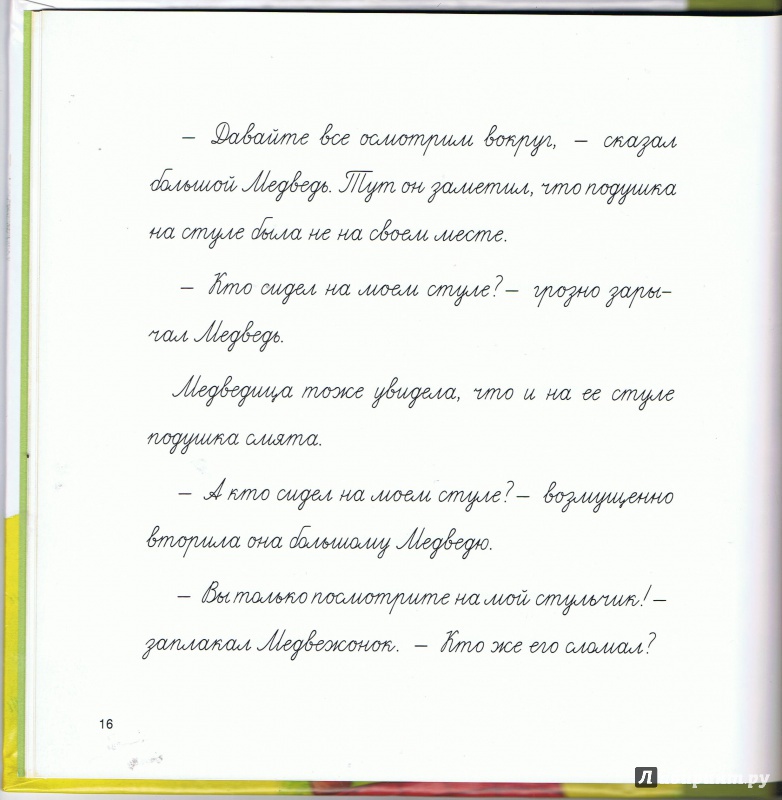 — Давайте все осмотрим вокруг, — сказал
большой Медведь. Тут он заметил, что подушка
на стуле была не на своем месте.
— Кто сидел на моем стуле? — грозно зары-
чал Медведь.
Медведица тоже увидела, что и на ее стуле
подушка смята.
— А кто сидел на моем стуле? — возмущенно
вторила она большому Медведю.
— Вы только посмотрите на мой стульчик! —
заплакал Медвежонок. — Кто же его сломал?
16
Лабиринт.ру